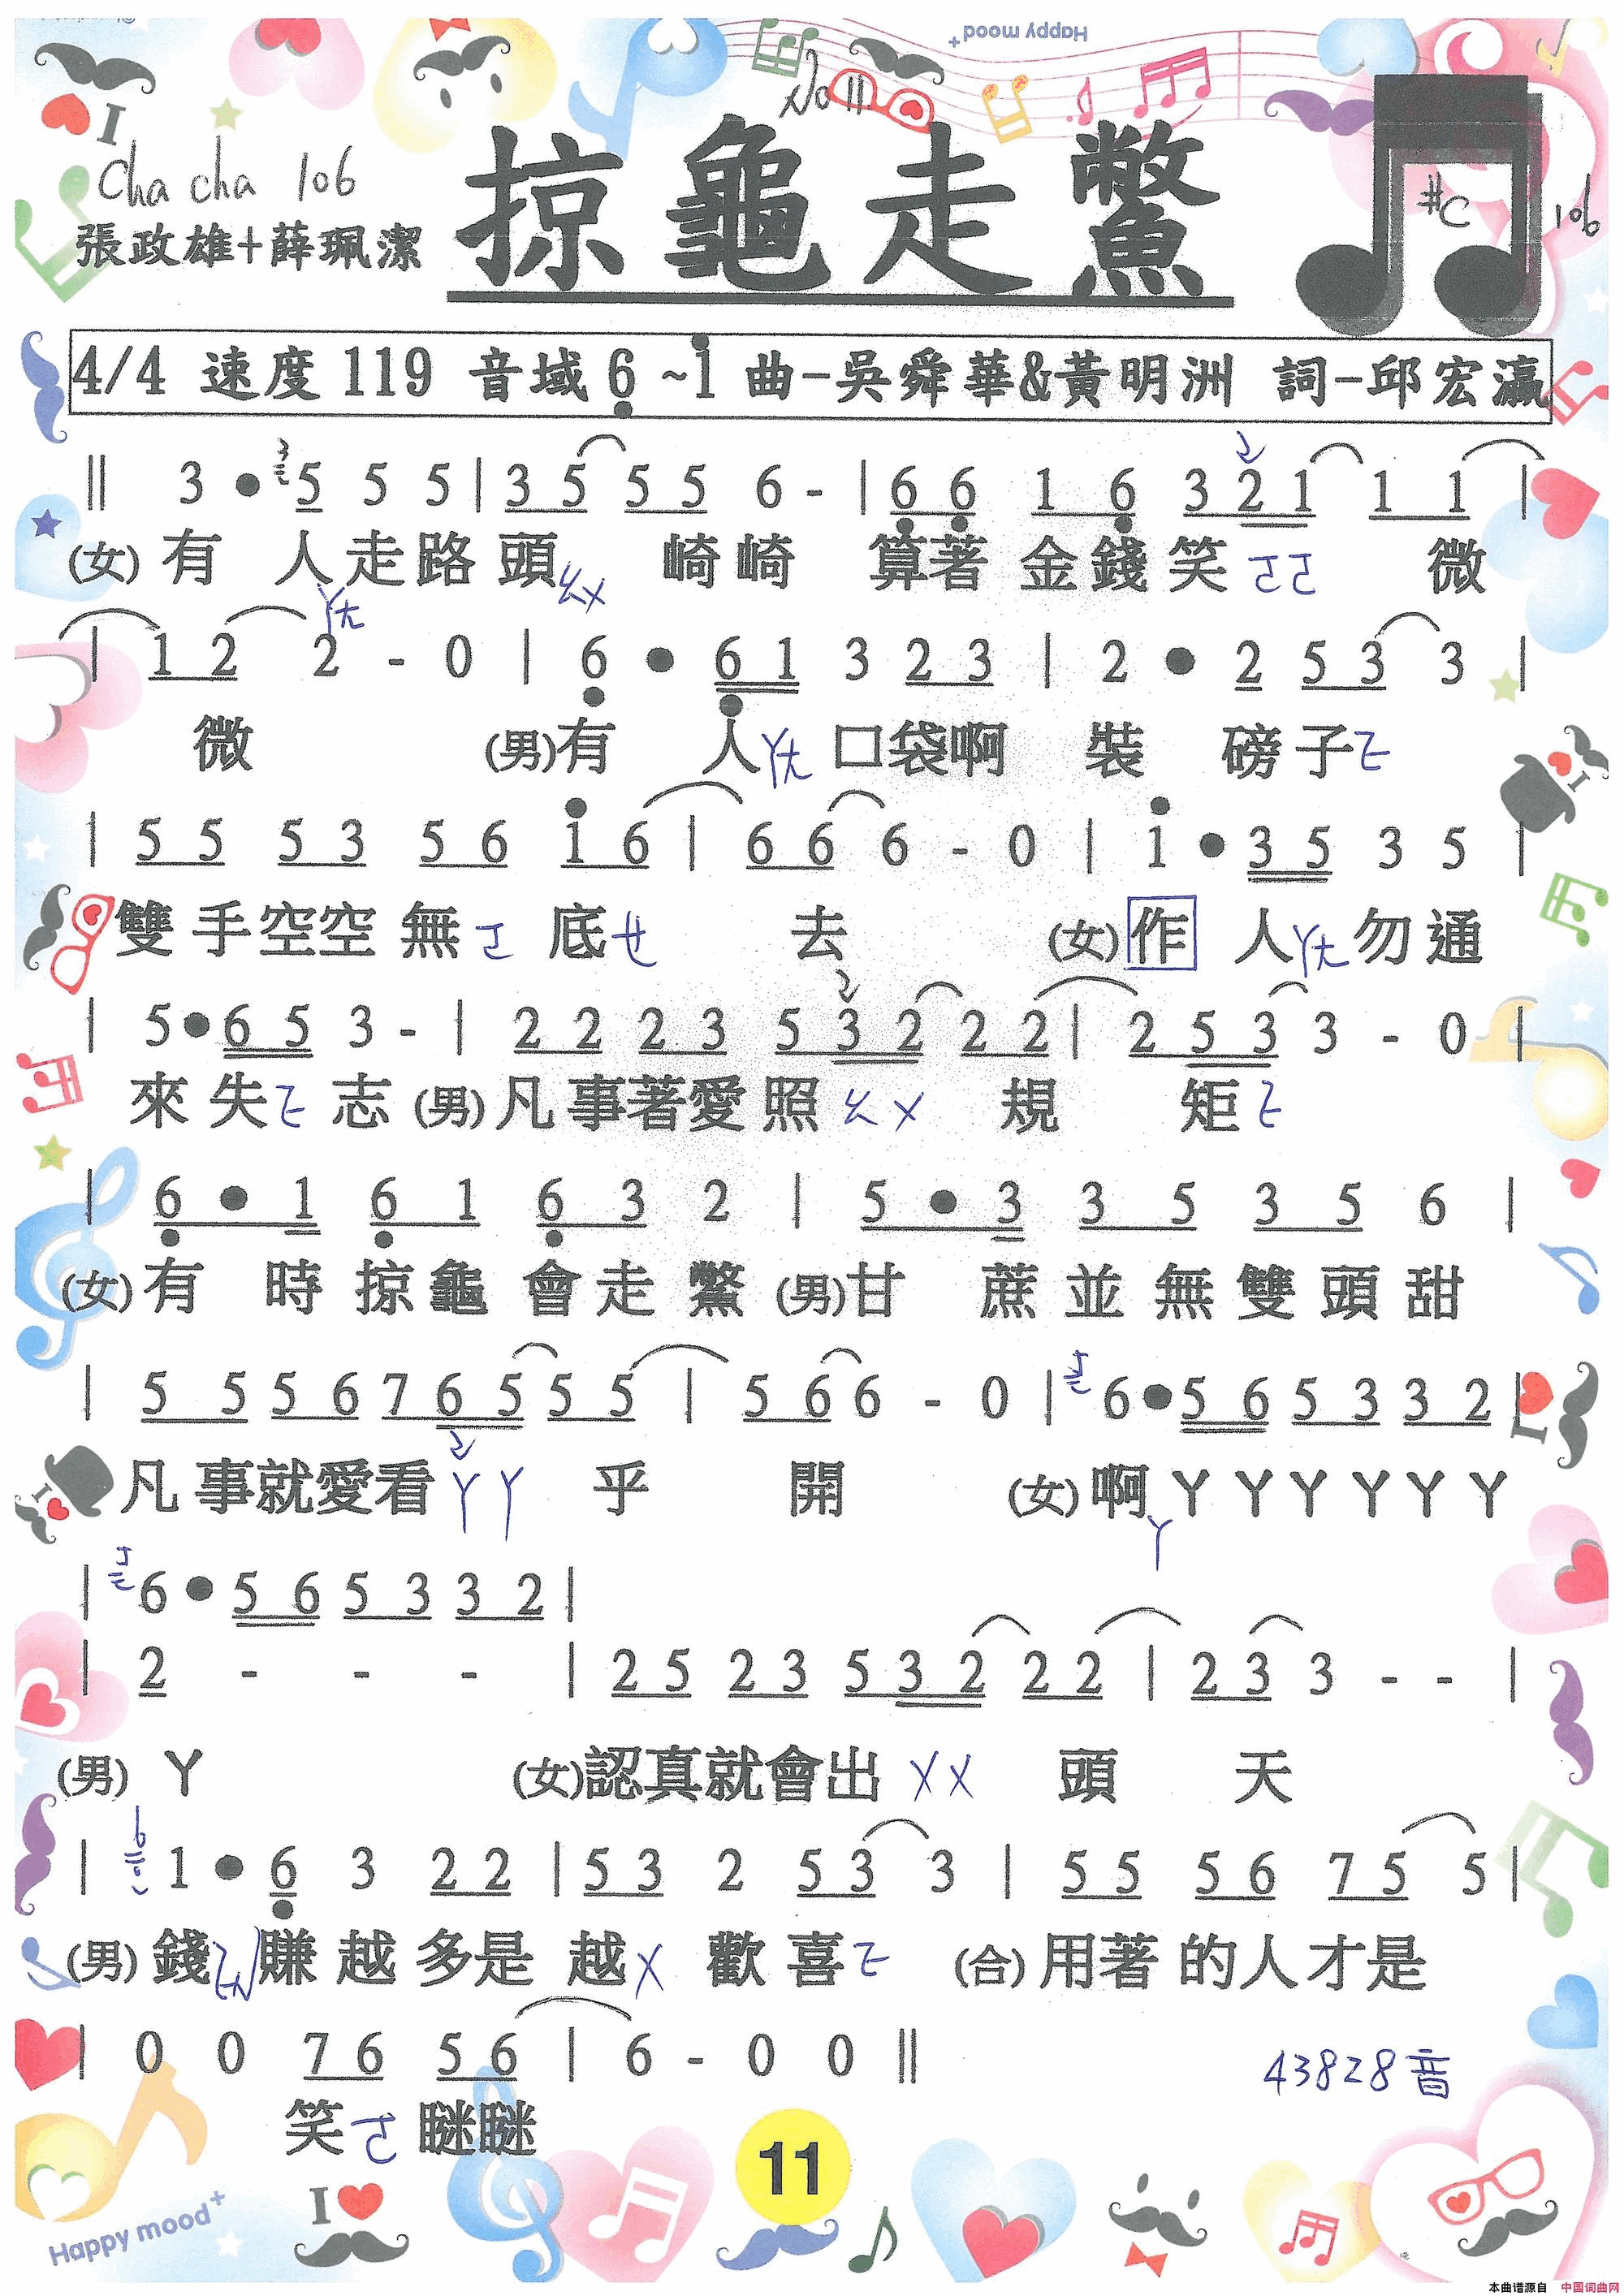 Happy mood+
No 11
I
cha cha 106
張政雄+薛珮潔
掠龜走鱉
#C 106
4/4 速度 119 音域 6 ~1 曲-吳舜華&黃明洲 詞-邱宏瀛
‖ 3 • 5 5 5 | 3 5 5 5 6 - | 6 6 1 6 3 2 1 1 1 |
(女) 有 人走路頭ㄠㄨ 崎崎 算著 金錢笑 ㄜㄜ 微
ㄚㄤ
| 1 2 2 - 0 | 6 • 6 1 3 2 3 | 2 • 2 5 3 3 |
微 (男)有 人ㄚㄤ 口袋啊 裝 磅子ㄜ
| 5 5 5 3 5 6 1 6 | 6 6 6 - 0 | 1 • 3 5 3 5 |
雙手空空無ㄜ 底ㄝ 去 (女)作 人ㄚㄤ勿通
| 5 • 6 5 3 - | 2 2 2 3 5 3 2 2 2 | 2 5 3 3 - 0 |
來失ㄜ 志 (男)凡事著愛照 ㄠㄨ 規 矩ㄜ
| 6 • 1 6 1 6 3 2 | 5 • 3 3 5 3 5 6 |
(女)有 時 掠龜 會走 鱉 (男)甘 蔗並無雙頭甜
| 5 5 5 6 7 6 5 5 5 | 5 6 6 - 0 | 6 • 5 6 5 3 3 2 |
凡事就愛看ㄚㄚ 乎 開 (女)啊ㄚㄚㄚㄚㄚㄚ
ㄚ
| 6 • 5 6 5 3 3 2 |
| 2 - - - | 2 5 2 3 5 3 2 2 2 | 2 3 3 - - |
(男) ㄚ (女)認真就會出 ㄨㄨ 頭 天
| 6 1 • 6 3 2 2 | 5 3 2 5 3 3 | 5 5 5 6 7 5 5 |
(男)錢 賺越多是 越ㄨ 歡喜ㄜ (合)用著的人才是
| 0 0 7 6 5 6 | 6 - 0 0 ‖
43828音
笑ㄜ 瞇瞇
11
I
Happy mood+
本曲谱源自 中国词曲网